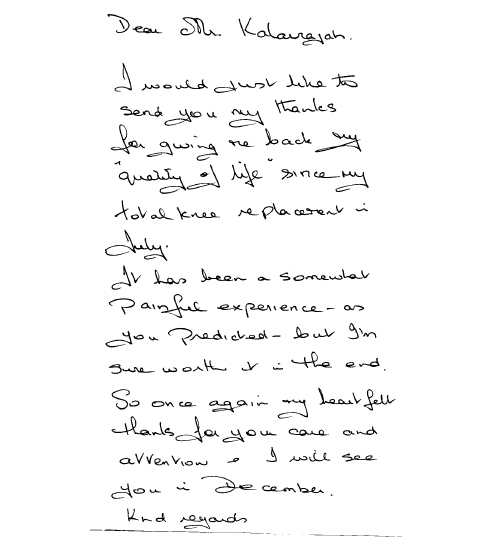 Dear Mr. Kalairajah.
I would just like to
send you my thanks
for giving me back my
"quality of life" since my
total knee replacement in
July.
It has been a somewhat
Painful experience - as
you Predicted - but I'm
sure worth it in the end.
So once again my heartfelt
thanks for you care and
attention & I will see
you in December.
Kind regards